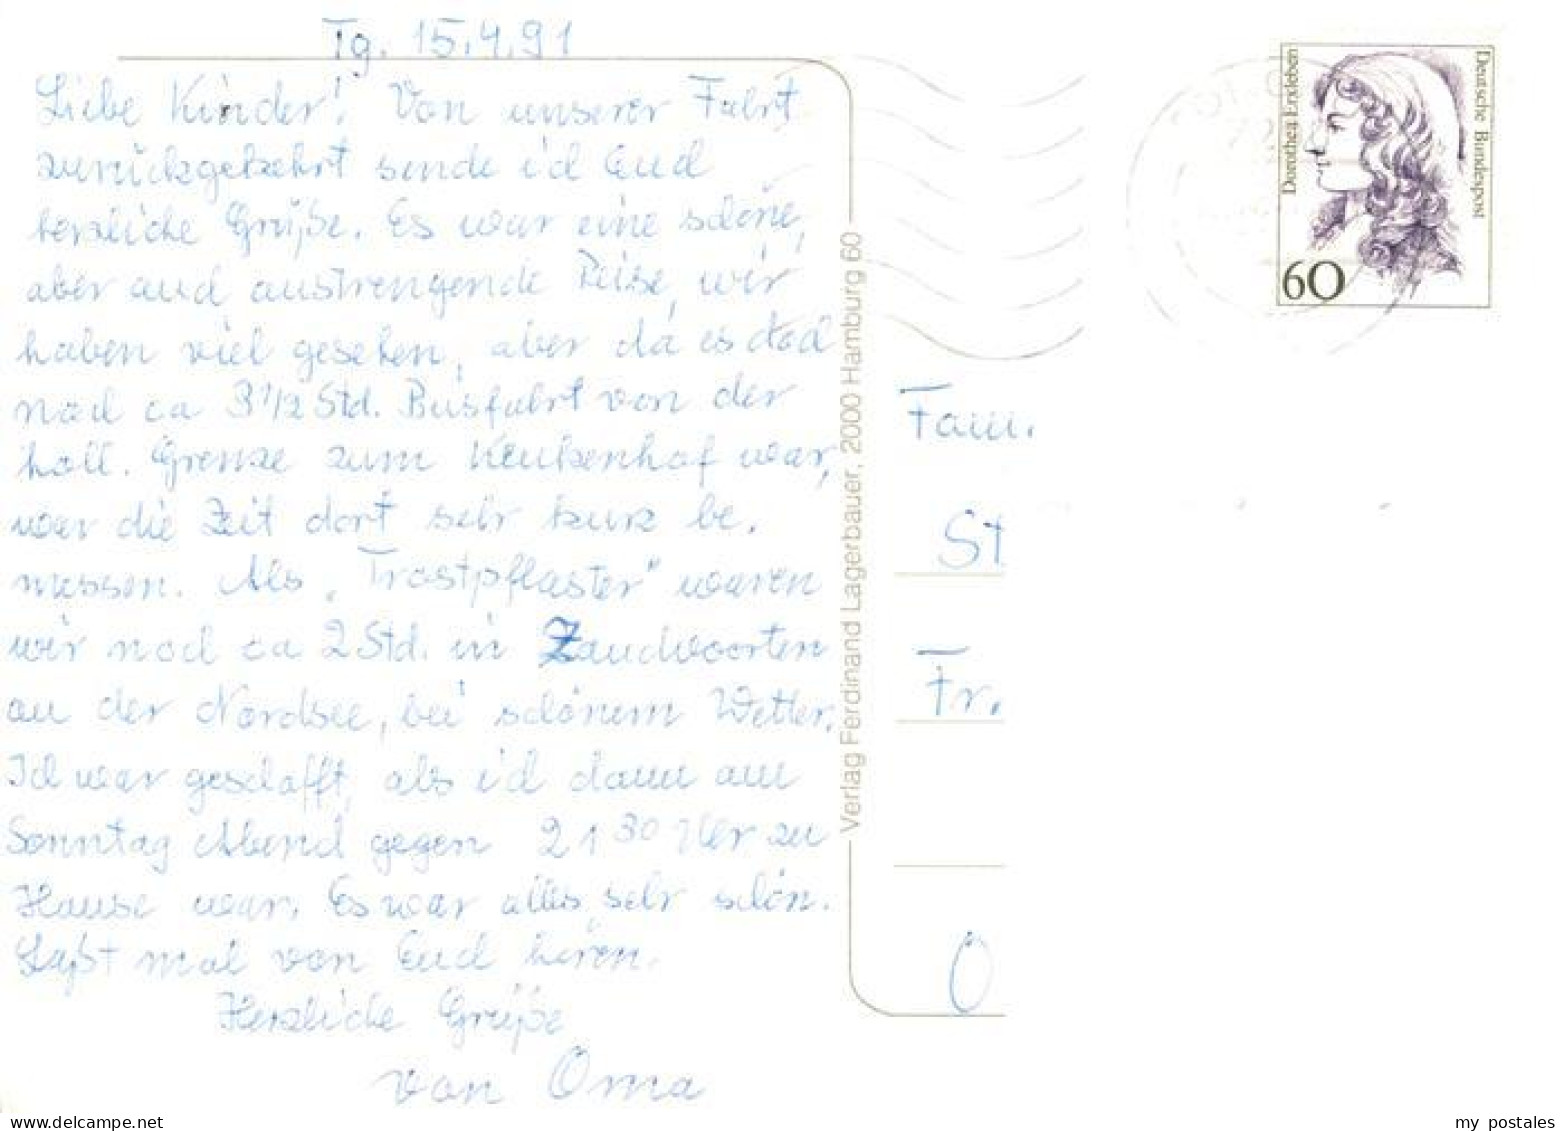 Tg. 15.4.91
Liebe Kinder! Von unserer Fahrt
zurückgekehrt sende ich Euch
herzliche Grüße. Es war eine schöne,
aber auch anstrengende Reise, wir
haben viel gesehen, aber da es doch
noch ca 3 1/2 Std. Busfahrt von der
holl. Grenze zum Keukenhof war,
war die Zeit dort sehr kurz be-
messen. Als „Trostpflaster" waren
wir noch ca 2 Std. in Zandvoorten
an der Nordsee, bei schönem Wetter.
Ich war geschafft, als ich dann am
Sonntag Abend gegen 21 30 Uhr zu
Hause war. Es war alles sehr schön.
Laßt mal von Euch hören.
Herzliche Grüße
von Oma
Verlag Ferdinand Lagerbauer, 2000 Hamburg 60
Dorothea Erxleben
Deutsche Bundespost
60
Fam.
St
Fr.
O
my postales